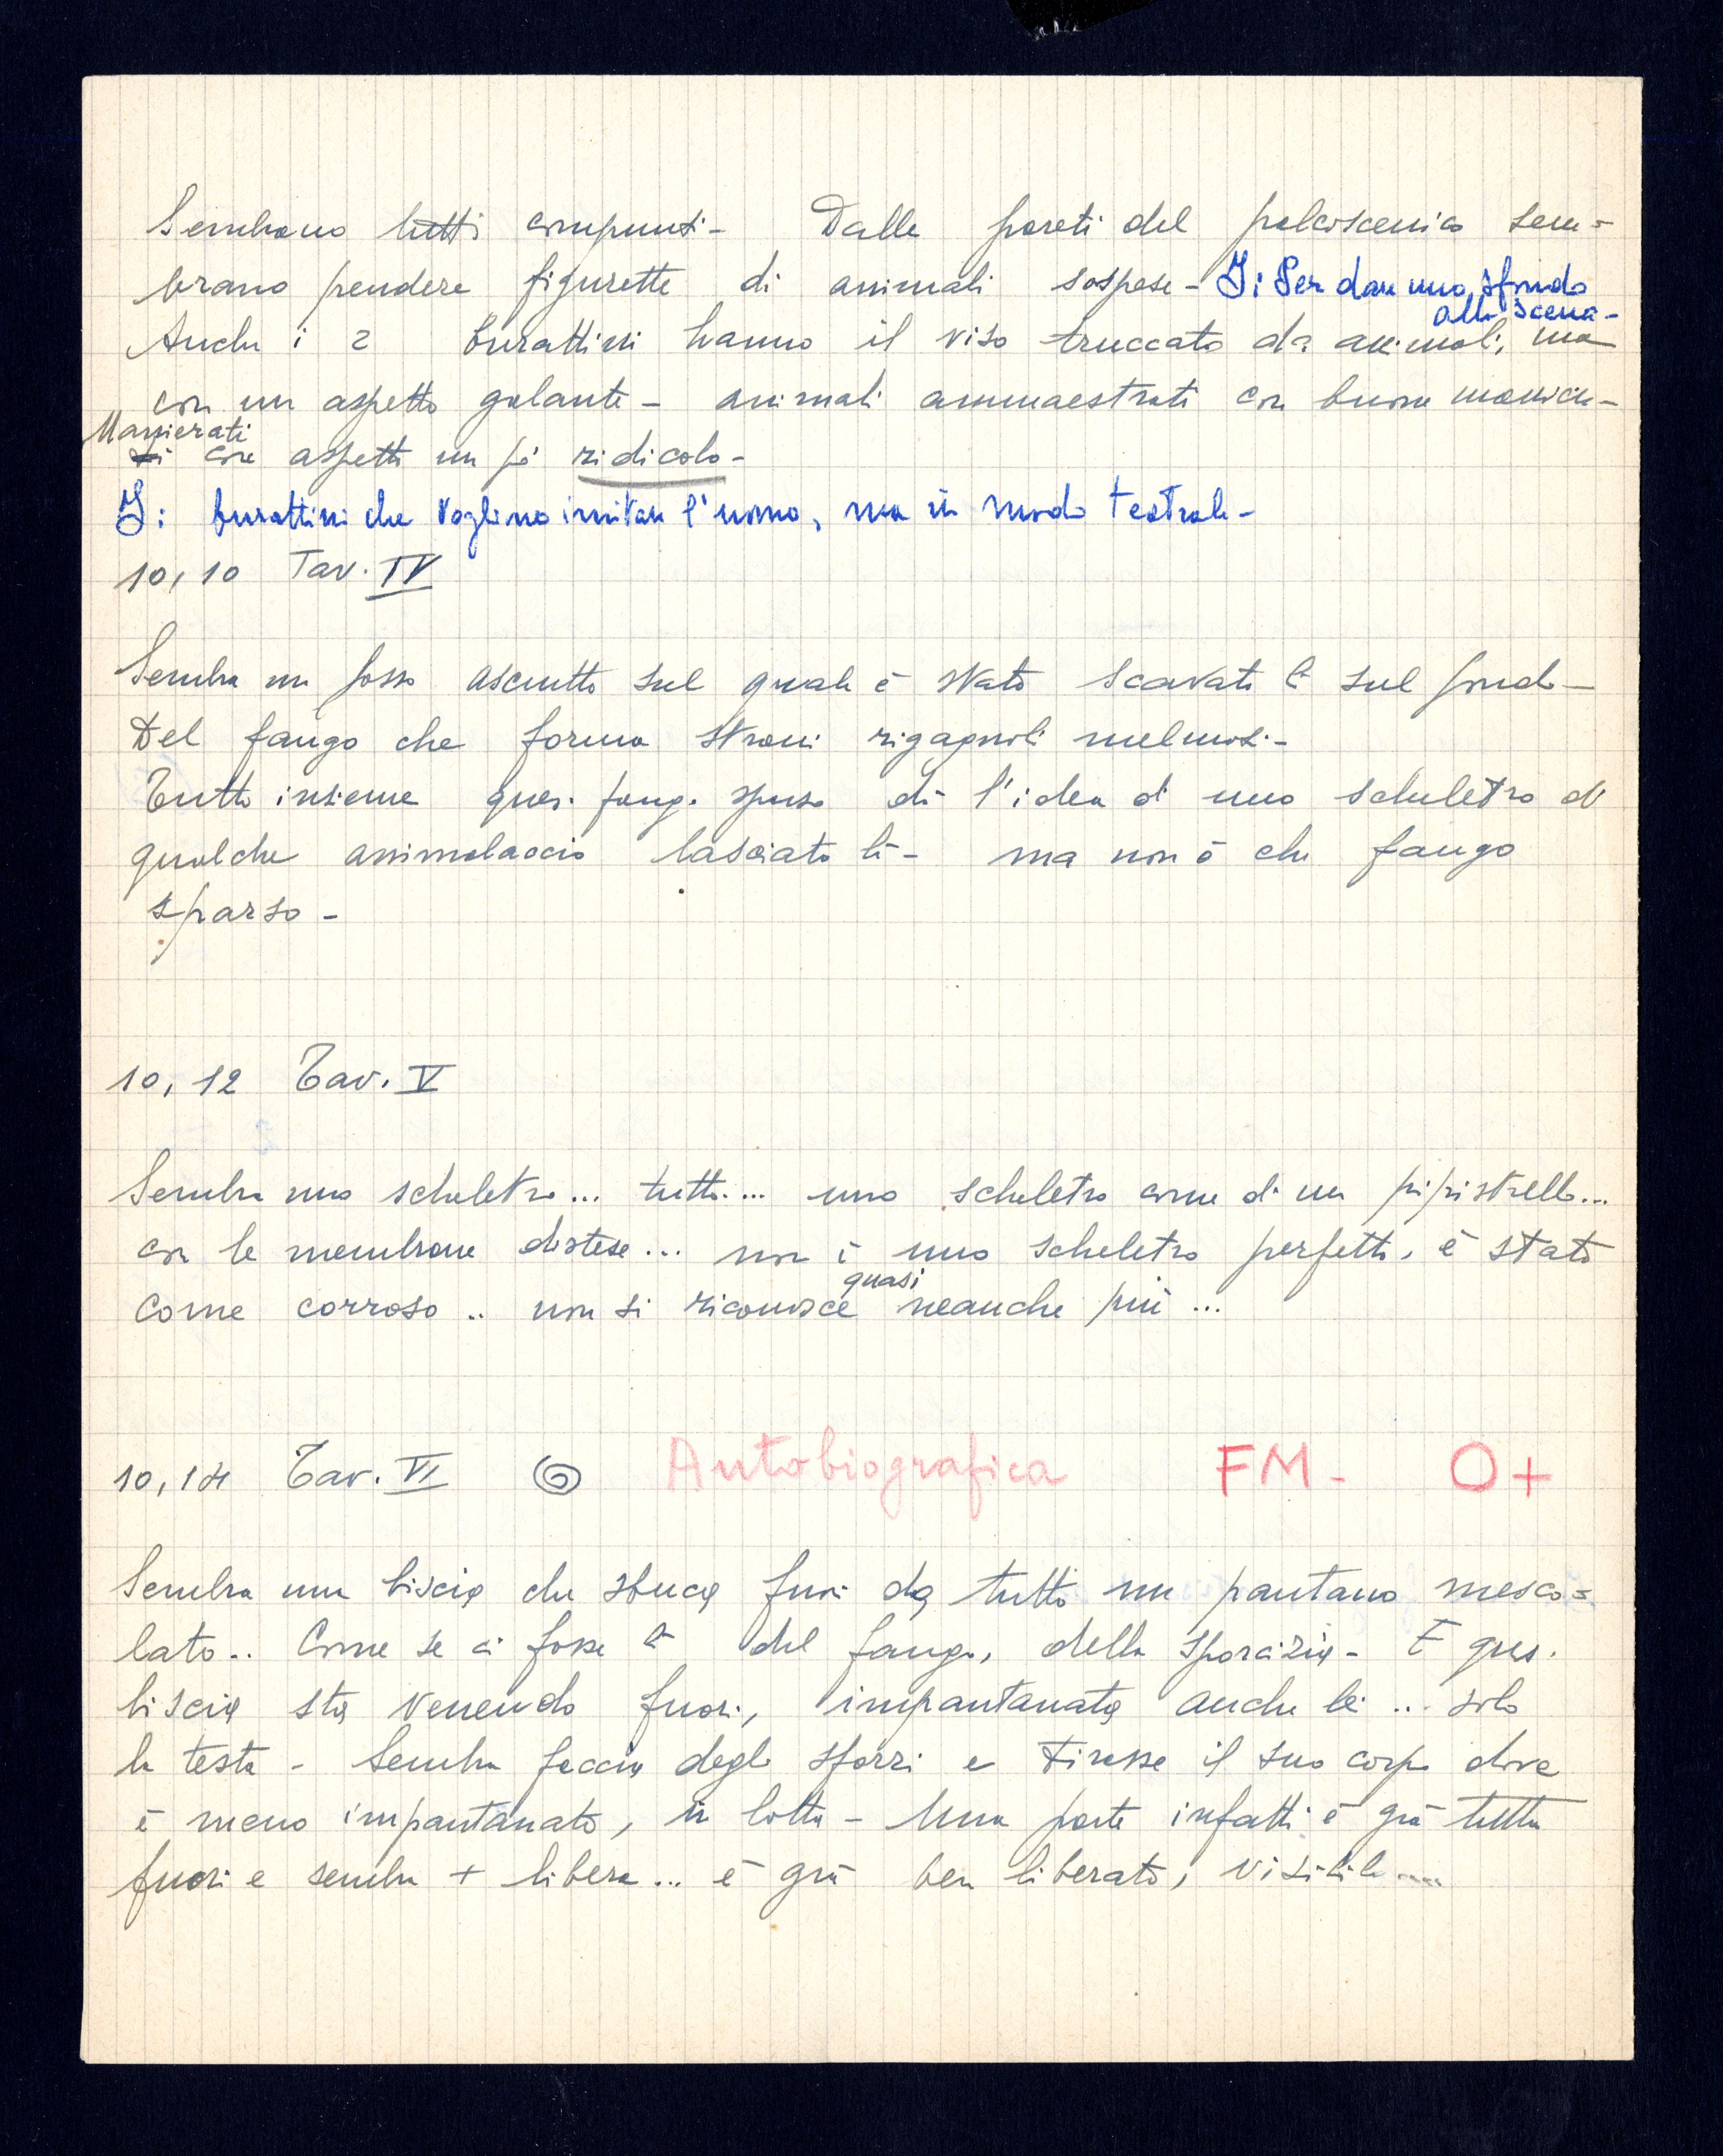 Sembrano tutti compunti - Dalle pareti del palcoscenico sem=
brano pendere figurette di animali sospese - I: Per dare uno sfondo
alla scena -
Anche i 2 burattini hanno il viso truccato da animali, ma
con un aspetto galante - animali ammaestrati con buone maniere -
Manierati
con aspetto un pò ridicolo -
I: burattini che vogliono imitare l'uomo, ma in modo teatrale -
10,10 Tav. IV
Sembra un fosso asciutto sul quale è stato scavato lì sul fondo -
Del fango che forma strani rigagnoli melmosi -
Tutto insieme ques. fango sparso dà l'idea di uno scheletro di
qualche animalaccio lasciato lì - ma non è che fango
sparso -
10,12 Tav. V
Sembra uno scheletro... tutto... uno scheletro come di un pipistrello...
con le membrane distese... non è uno scheletro perfetto, è stato
quasi
come corroso .. non si riconosce neanche più ...
10,14 Tav. VI Autobiografica FM - O+
Sembra una biscia che sbuca fuori da tutto un pantano mesco=
lato.. Come se ci fosse lì del fango, della sporcizia - E ques.
biscia sta venendo fuori, impantanata anche lei ... solo
la testa - Sembra faccia degli sforzi e tirasse il suo corpo dove
è meno impantanato, in lotta - Una parte infatti è già tutta
fuori e sembra + libera... è già ben liberato, visibile ....